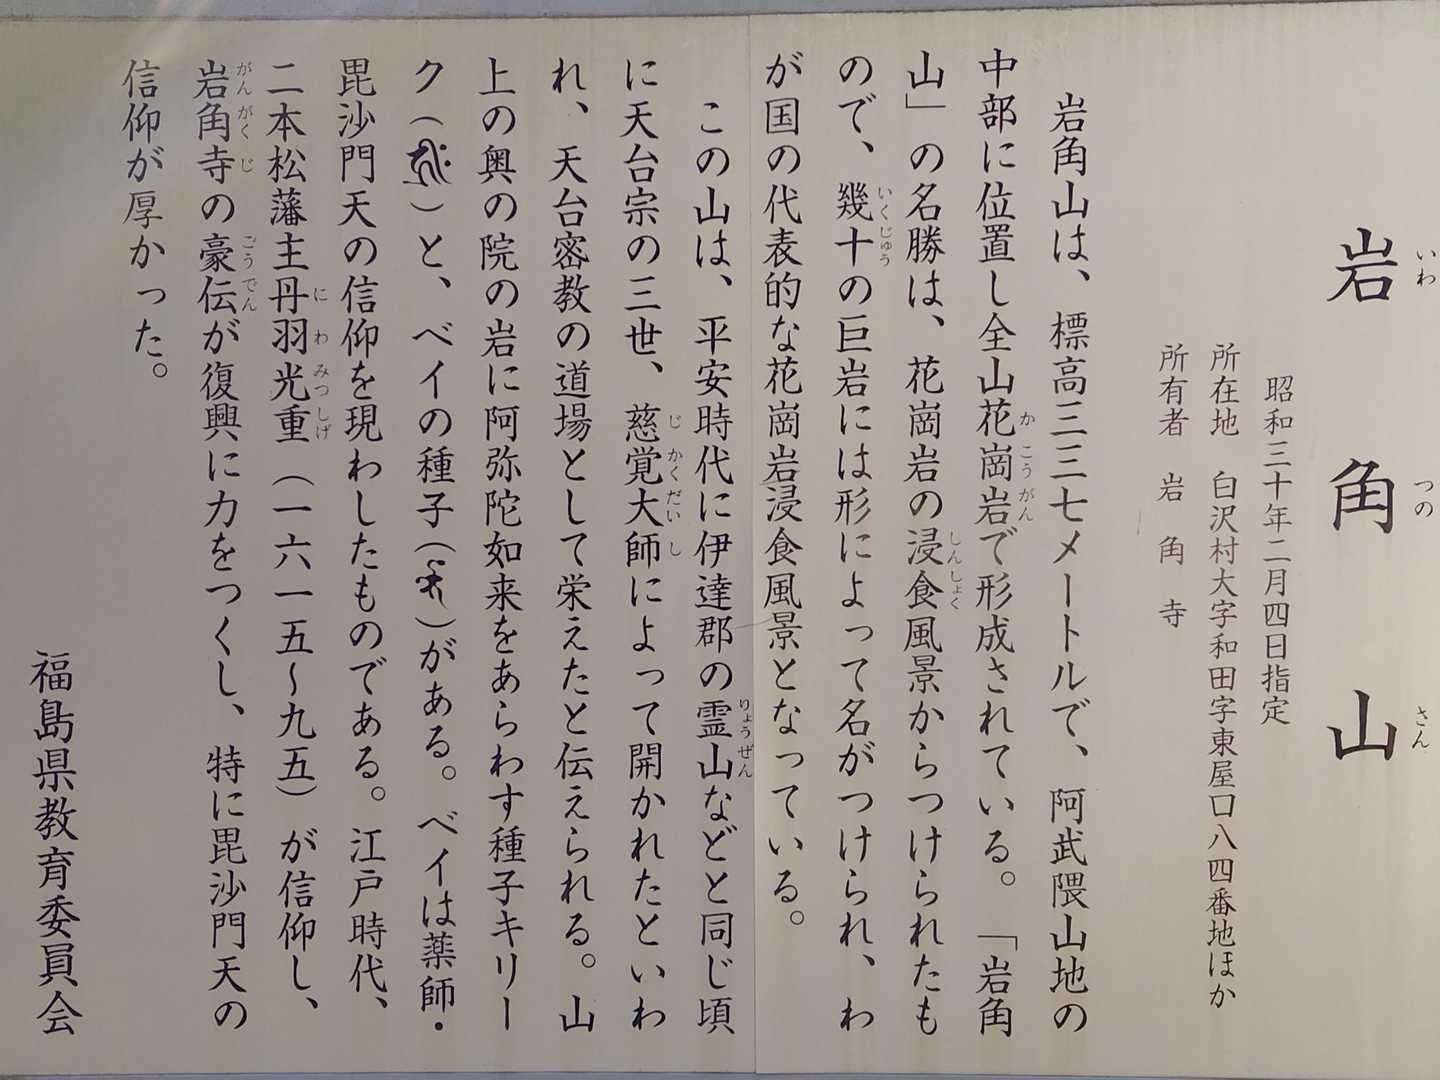 岩角山
昭和三十年二月四日指定
所在地　白沢村大字和田字東屋口八四番地ほか
所有者　岩角寺
岩角山は、標高三三七メートルで、阿武隈山地の
中部に位置し全山花崗岩で形成されている。「岩角
山」の名勝は、花崗岩の浸食風景からつけられたも
ので、幾十の巨岩には形によって名がつけられ、わ
が国の代表的な花崗岩浸食風景となっている。
この山は、平安時代に伊達郡の霊山などと同じ頃
に天台宗の三世、慈覚大師によって開かれたといわ
れ、天台密教の道場として栄えたと伝えられる。山
上の奥の院の岩に阿弥陀如来をあらわす種子キリー
ク（）と、ベイの種子（）がある。ベイは薬師・
毘沙門天の信仰を現わしたものである。江戸時代、
二本松藩主丹羽光重（一六一五〜九五）が信仰し、
岩角寺の豪伝が復興に力をつくし、特に毘沙門天の
信仰が厚かった。
福島県教育委員会